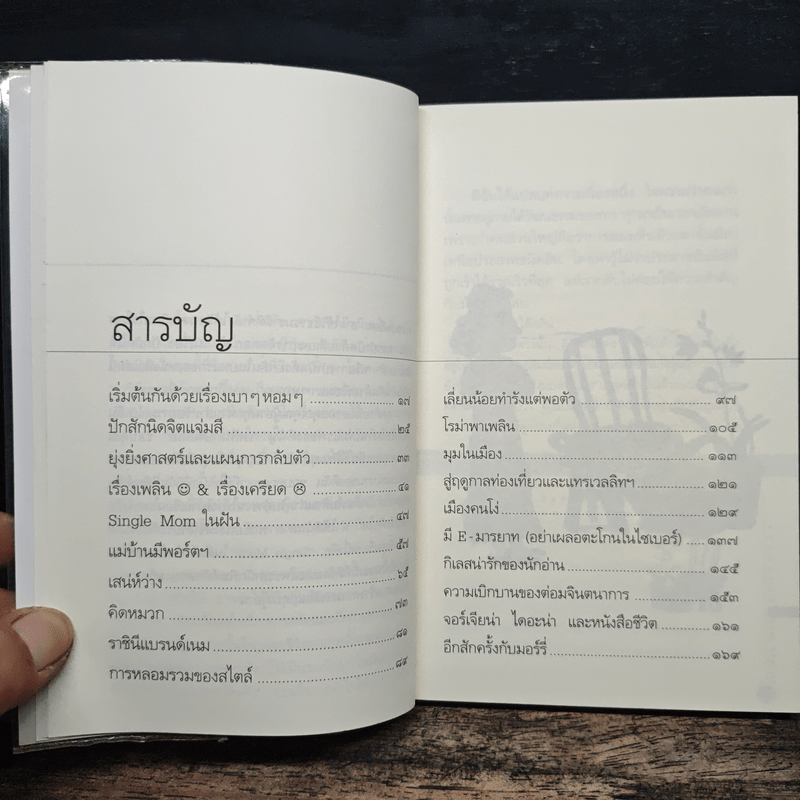 สารบัญ
เริ่มต้นกันด้วยเรื่องเบา ๆ หอม ๆ ๑๗
ปักสักนิดจิตแจ่มสี ๒๕
ยุ่งยิ่งศาสตร์และแผนการกลับตัว ๓๓
เรื่องเพลิน ☺ & เรื่องเครียด ☹ ๔๑
Single Mom ในฝัน ๔๗
แม่บ้านมีพอร์ตฯ ๕๗
เสน่ห์ว่าง ๖๕
คิดหมวก ๗๓
ราชินีแบรนด์เนม ๘๑
การหลอมรวมของสไตล์ ๘๙
เลี่ยนน้อยทำรังแต่พอตัว ๙๗
โรม่าพาเพลิน ๑๐๕
มุมในเมือง ๑๑๓
สู่ฤดูกาลท่องเที่ยวและแทรเวลลิทฯ ๑๒๑
เมืองคนโง่ ๑๒๙
มี E-มารยาท (อย่าเผลอตะโกนในไซเบอร์) ๑๓๗
กิเลสน่ารักของนักอ่าน ๑๔๕
ความเบิกบานของต่อมจินตนาการ ๑๕๓
จอร์เจียน่า ไดอะน่า และหนังสือชีวิต ๑๖๑
อีกสักครั้งกับมอร์รี่ ๑๖๙